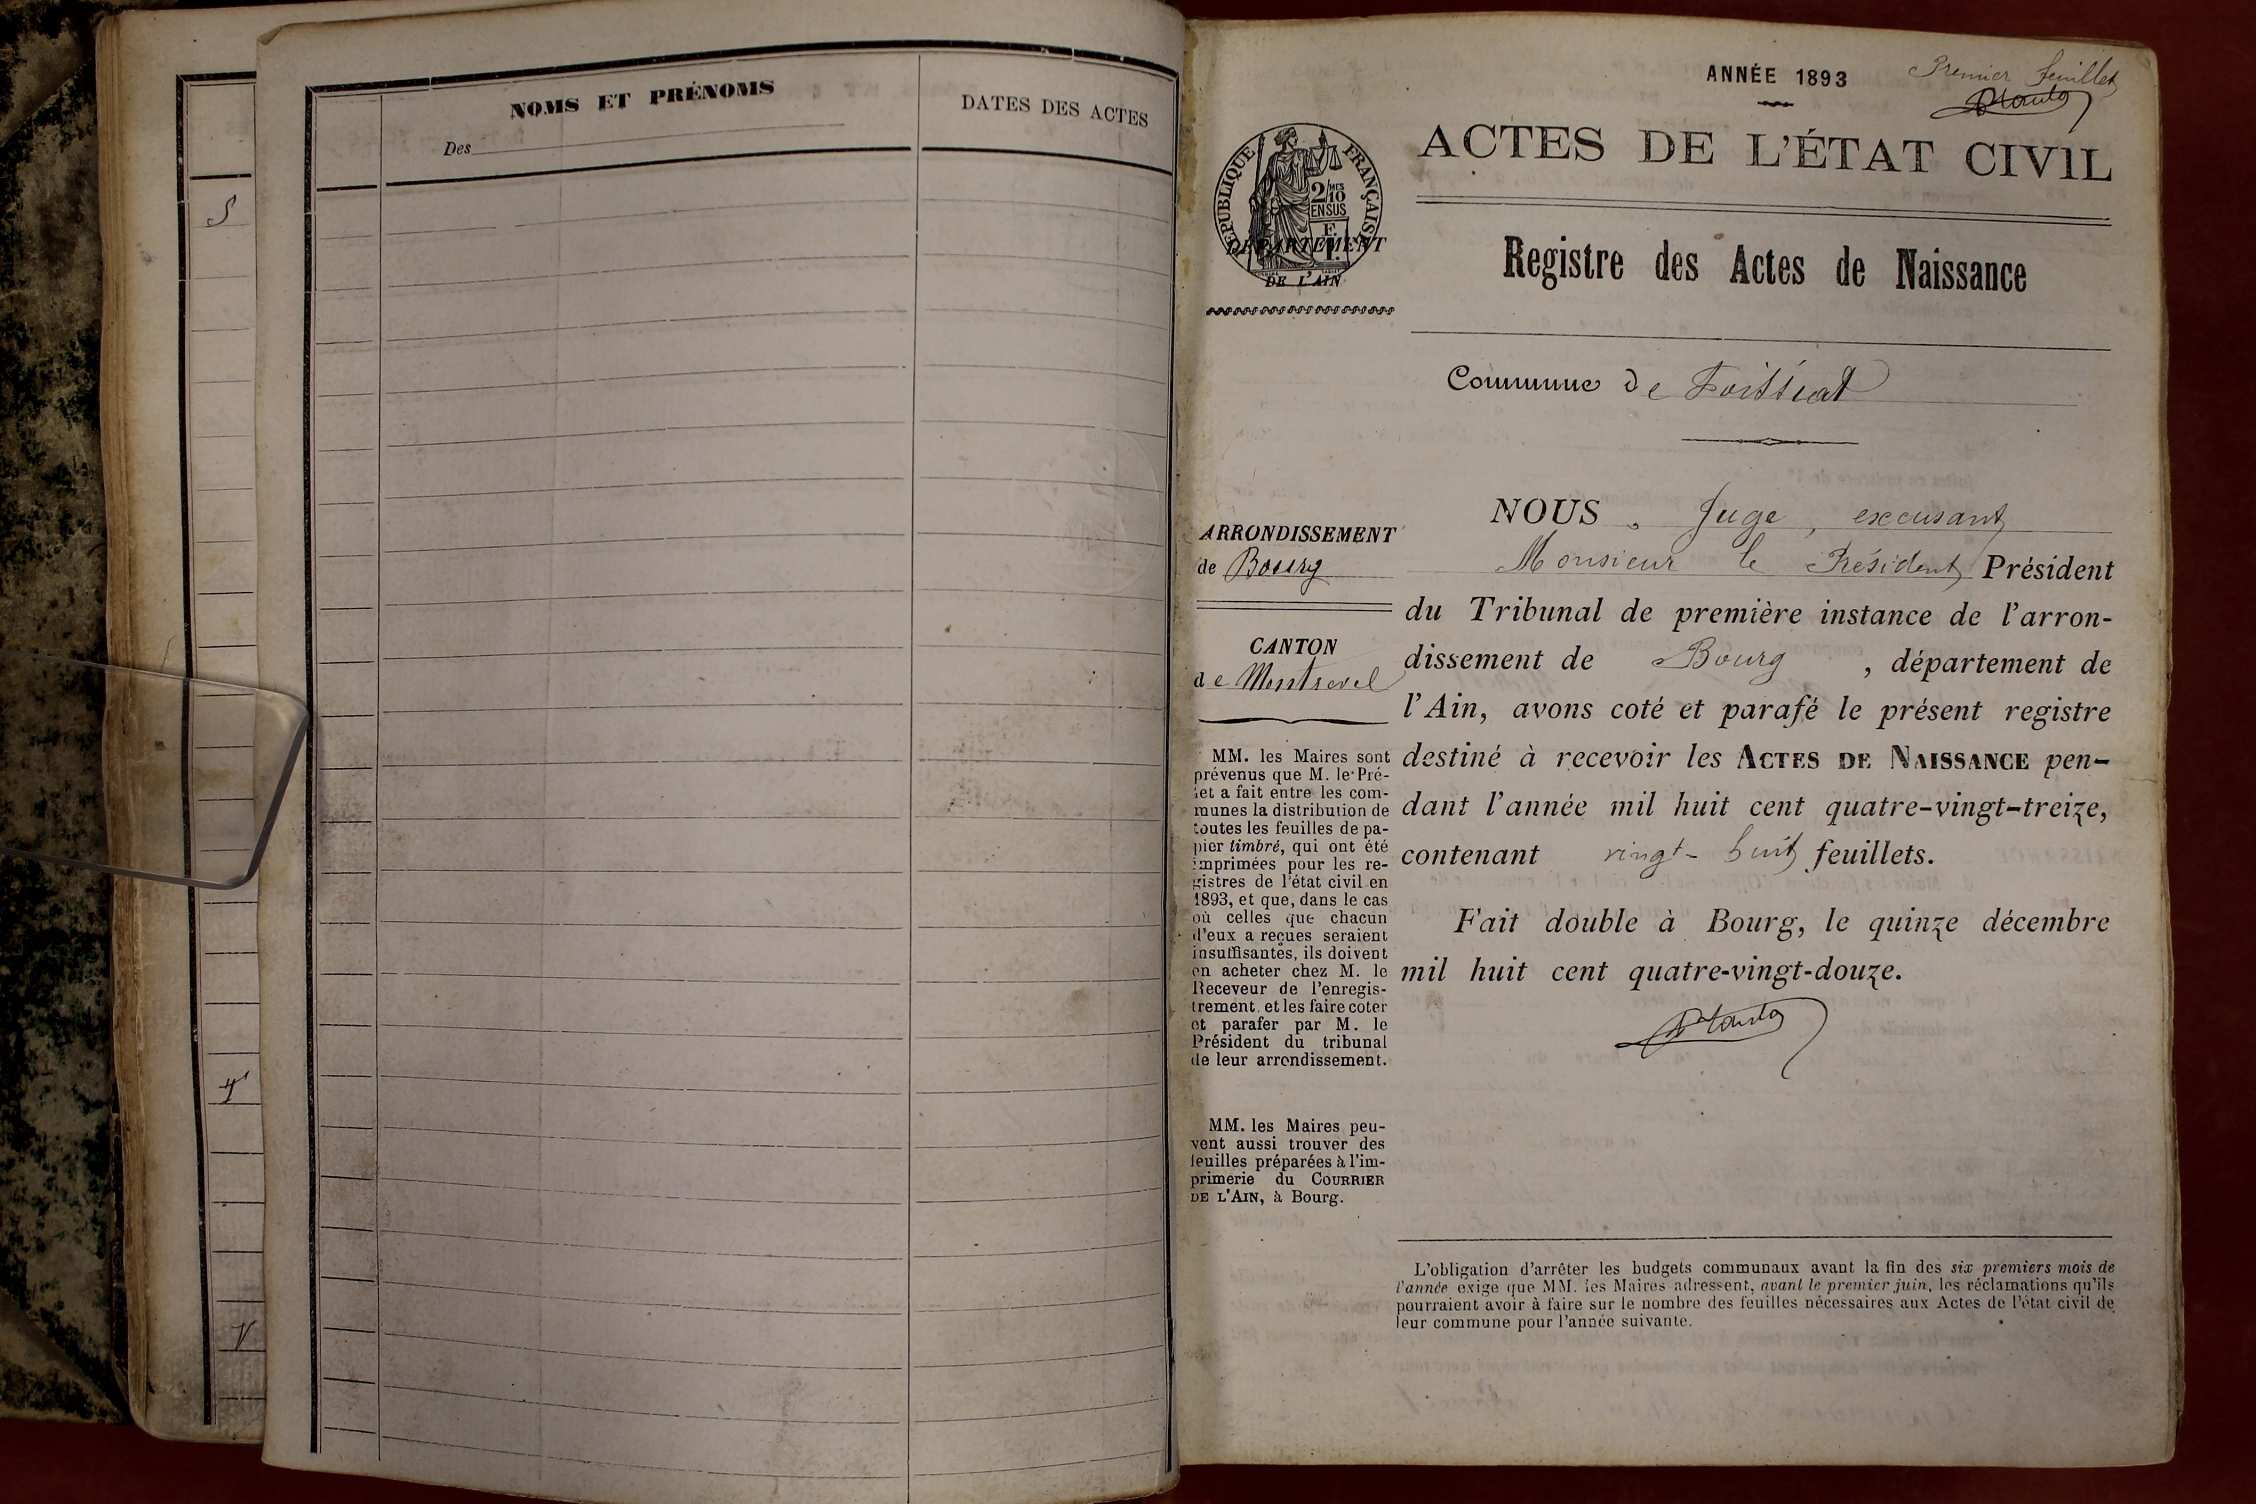 S
T
V
NOMS ET PRÉNOMS
DATES DES ACTES
Des
ANNÉE 1893
Premier feuillet
RÉPUBLIQUE FRANÇAISE
2/10 MES
EN SUS
DÉPARTEMENT
DE L'AIN
ACTES DE L'ÉTAT CIVIL
Registre des Actes de Naissance
Commune de Foissiat
ARRONDISSEMENT
de Bourg
CANTON
de Montrevel
MM. les Maires sont
prévenus que M. le Pré-
fet a fait entre les com-
munes la distribution de
toutes les feuilles de pa-
pier timbré, qui ont été
imprimées pour les re-
gistres de l'état civil en
1893, et que, dans le cas
où celles que chacun
d'eux a reçues seraient
insuffisantes, ils doivent
en acheter chez M. le
Receveur de l'enregis-
trement, et les faire coter
et parafer par M. le
Président du tribunal
de leur arrondissement.
MM. les Maires peu-
vent aussi trouver des
feuilles préparées à l'im-
primerie du COURRIER
DE L'AIN, à Bourg.
NOUS, Juge, excusant
Monsieur le Président Président
du Tribunal de première instance de l'arron-
dissement de Bourg, département de
l'Ain, avons coté et parafé le présent registre
destiné à recevoir les ACTES DE NAISSANCE pen-
dant l'année mil huit cent quatre-vingt-treize,
contenant vingt-huit feuillets.
Fait double à Bourg, le quinze décembre
mil huit cent quatre-vingt-douze.
L'obligation d'arrêter les budgets communaux avant la fin des six premiers mois de
l'année exige que MM. les Maires adressent, avant le premier juin, les réclamations qu'ils
pourraient avoir à faire sur le nombre des feuilles nécessaires aux Actes de l'état civil de
leur commune pour l'année suivante.